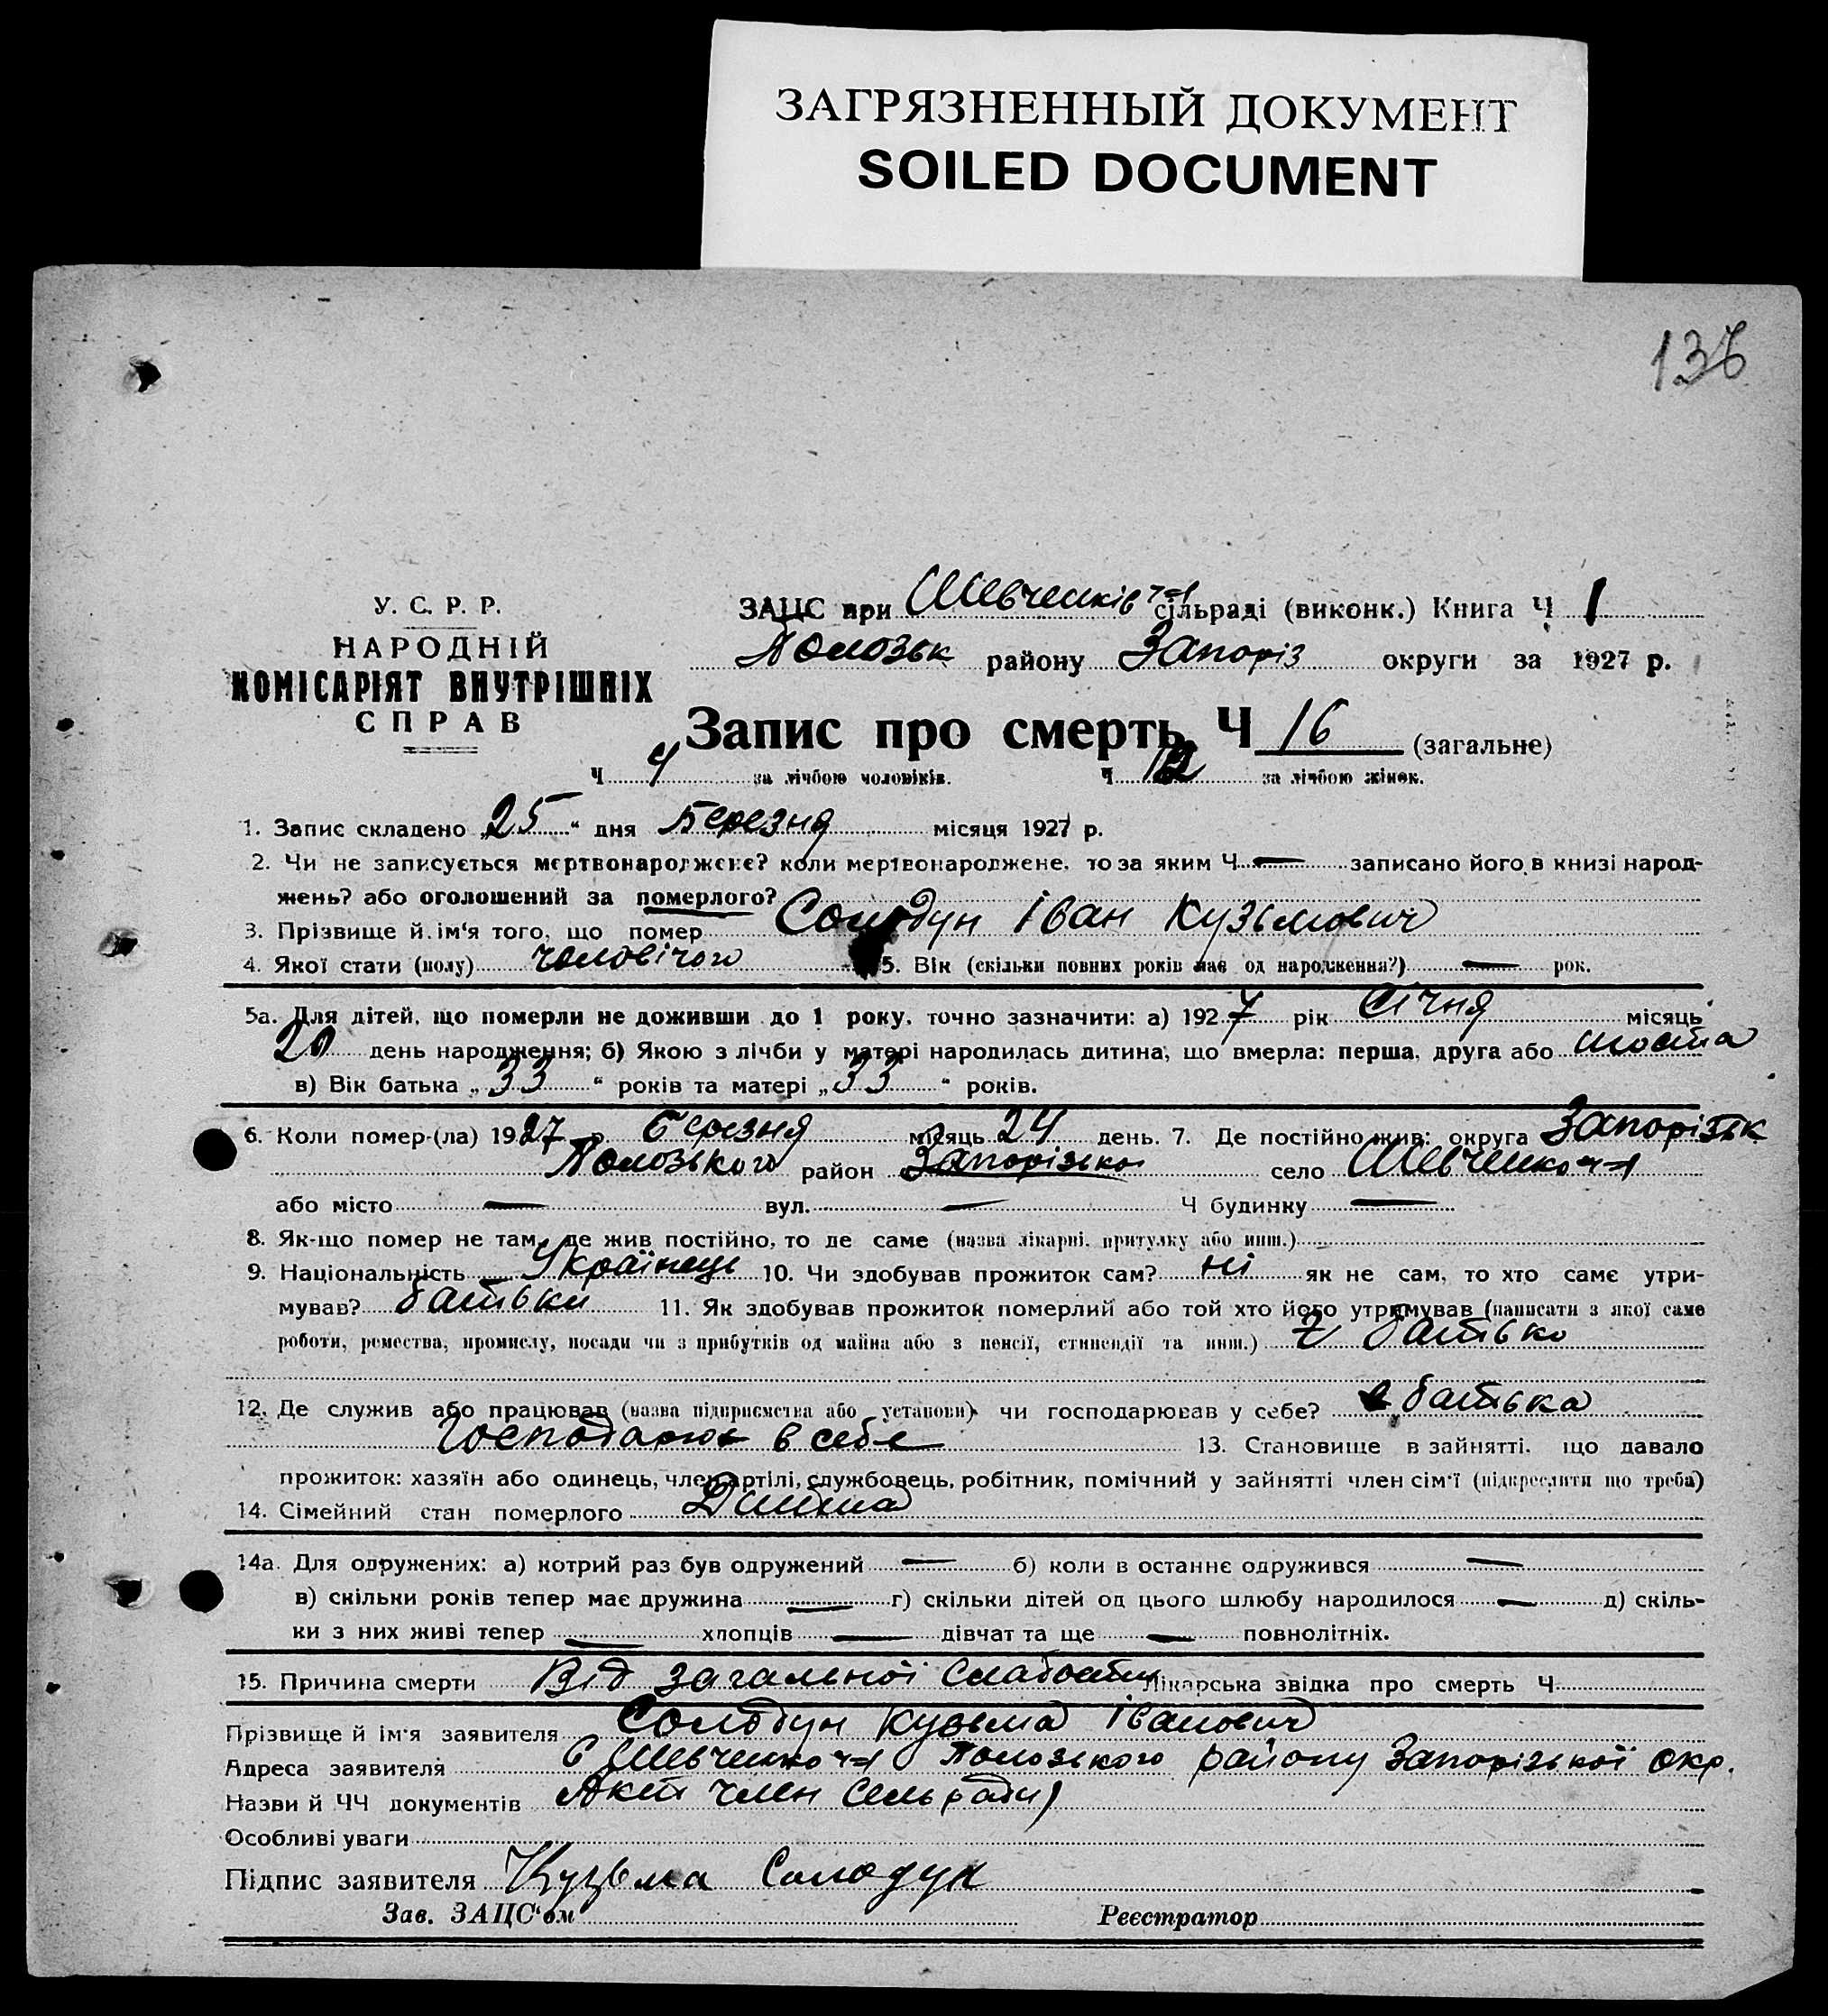 ЗАГРЯЗНЕННЫЙ ДОКУМЕНТ
SOILED DOCUMENT
136
У. С. Р. Р.
НАРОДНІЙ
КОМІСАРІЯТ ВНУТРІШНІХ
СПРАВ
ЗАЦС при Шевченків сільраді (виконк.) Книга Ч 1
Полозьк району Запоріз округи за 1927 р.
Запис про смерть Ч 16 (загальне)
Ч 4 за лічбою чоловіків. Ч 12 за лічбою жінок.
1. Запис складено „25“ дня Березня місяця 1927 р.
2. Чи не записується мертвонароджене? коли мертвонароджене, то за яким Ч — записано його в книзі народ-
жень? або оголошений за померлого?
3. Прізвище й ім'я того, що помер Солодун Іван Кузьмович
4. Якої стати (полу) чоловічого 5. Вік (скільки повних років має од народження?) — рок.
5а. Для дітей, що померли не доживши до 1 року, точно зазначити: а) 1927 рік Січня місяць
20 день народження; б) Якою з лічби у матері народилась дитина, що вмерла: перша, друга або шоста
в) Вік батька „33“ років та матері „33“ років.
6. Коли помер-(ла) 1927 р. березня місяць 24 день. 7. Де постійно жив: округа Запорізьк
Полозького район Запорізької село Шевченко
або місто — вул. — Ч будинку —
8. Як-що помер не там, де жив постійно, то де саме (назва лікарні, притулку або инш.)
9. Національність Українець 10. Чи здобував прожиток сам? ні як не сам, то хто саме утри-
мував? батьки 11. Як здобував прожиток померлий або той хто його утримував (написати з якої саме
роботи, ремества, промислу, посади чи з прибутків од майна або з пенсії, стипендії та инш.) батько
12. Де служив або працював (назва підприємства або установи) чи господарював у себе? батька
Господарює в себе 13. Становище в зайнятті, що давало
прожиток: хазяїн або одинець, член артілі, службовець, робітник, помічний у зайнятті член сім'ї (підкреслити що треба)
14. Сімейний стан померлого Дитина
14а. Для одружених: а) котрий раз був одружений — б) коли в останнє одружився —
в) скільки років тепер має дружина — г) скільки дітей од цього шлюбу народилося — д) скіль-
ки з них живі тепер — хлопців — дівчат та ще — повнолітніх.
15. Причина смерти Від загальної слабости Лікарська звідка про смерть Ч
Прізвище й ім'я заявителя Солодун Кузьма Іванович
Адреса заявителя С Шевченко Полозького району Запорізької окр.
Назви й ЧЧ документів Акт член Сельради
Особливі уваги
Підпис заявителя Кузьма Солодун
Зав. ЗАЦС'ом Реєстратор